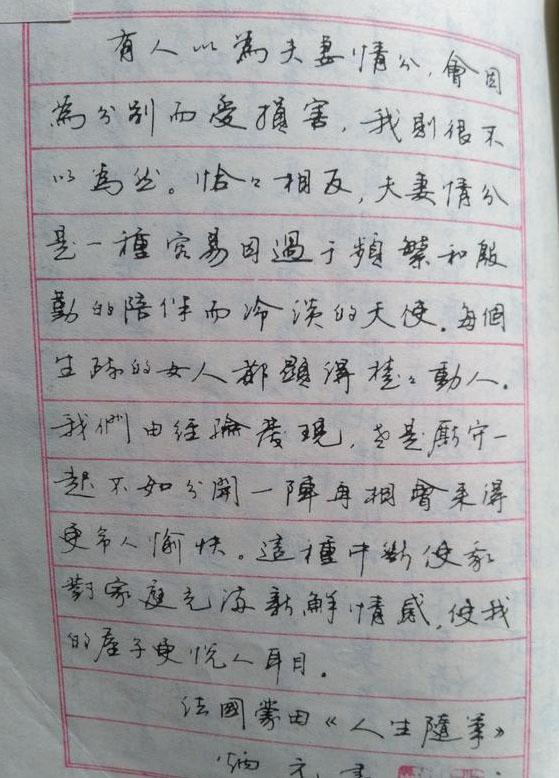 有人以為夫妻情分，會因
為分別而受損害，我則很不
以為然。恰々相反，夫妻情分
是一種容易因過于頻繁和殷
勤的陪伴而冷淡的天使。每個
生疏的女人都顯得楚々動人。
我們由經驗發現，老是厮守一
起不如分開一陣再相會來得
更令人愉快。這種中斷使我
對家庭充滿新鮮情感，使我
的房子更悦人耳目。
法國蒙田《人生隨筆》
炳元